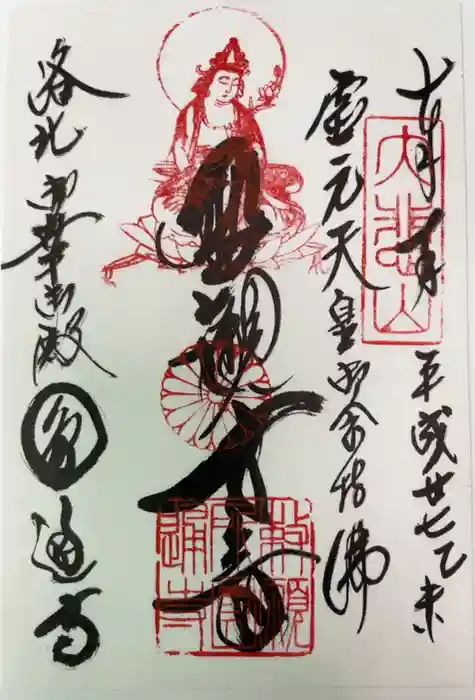 平成廿七乙未
大悲山
霊元天皇御念持佛
聖観世音
洛北御幸御殿
圓通寺